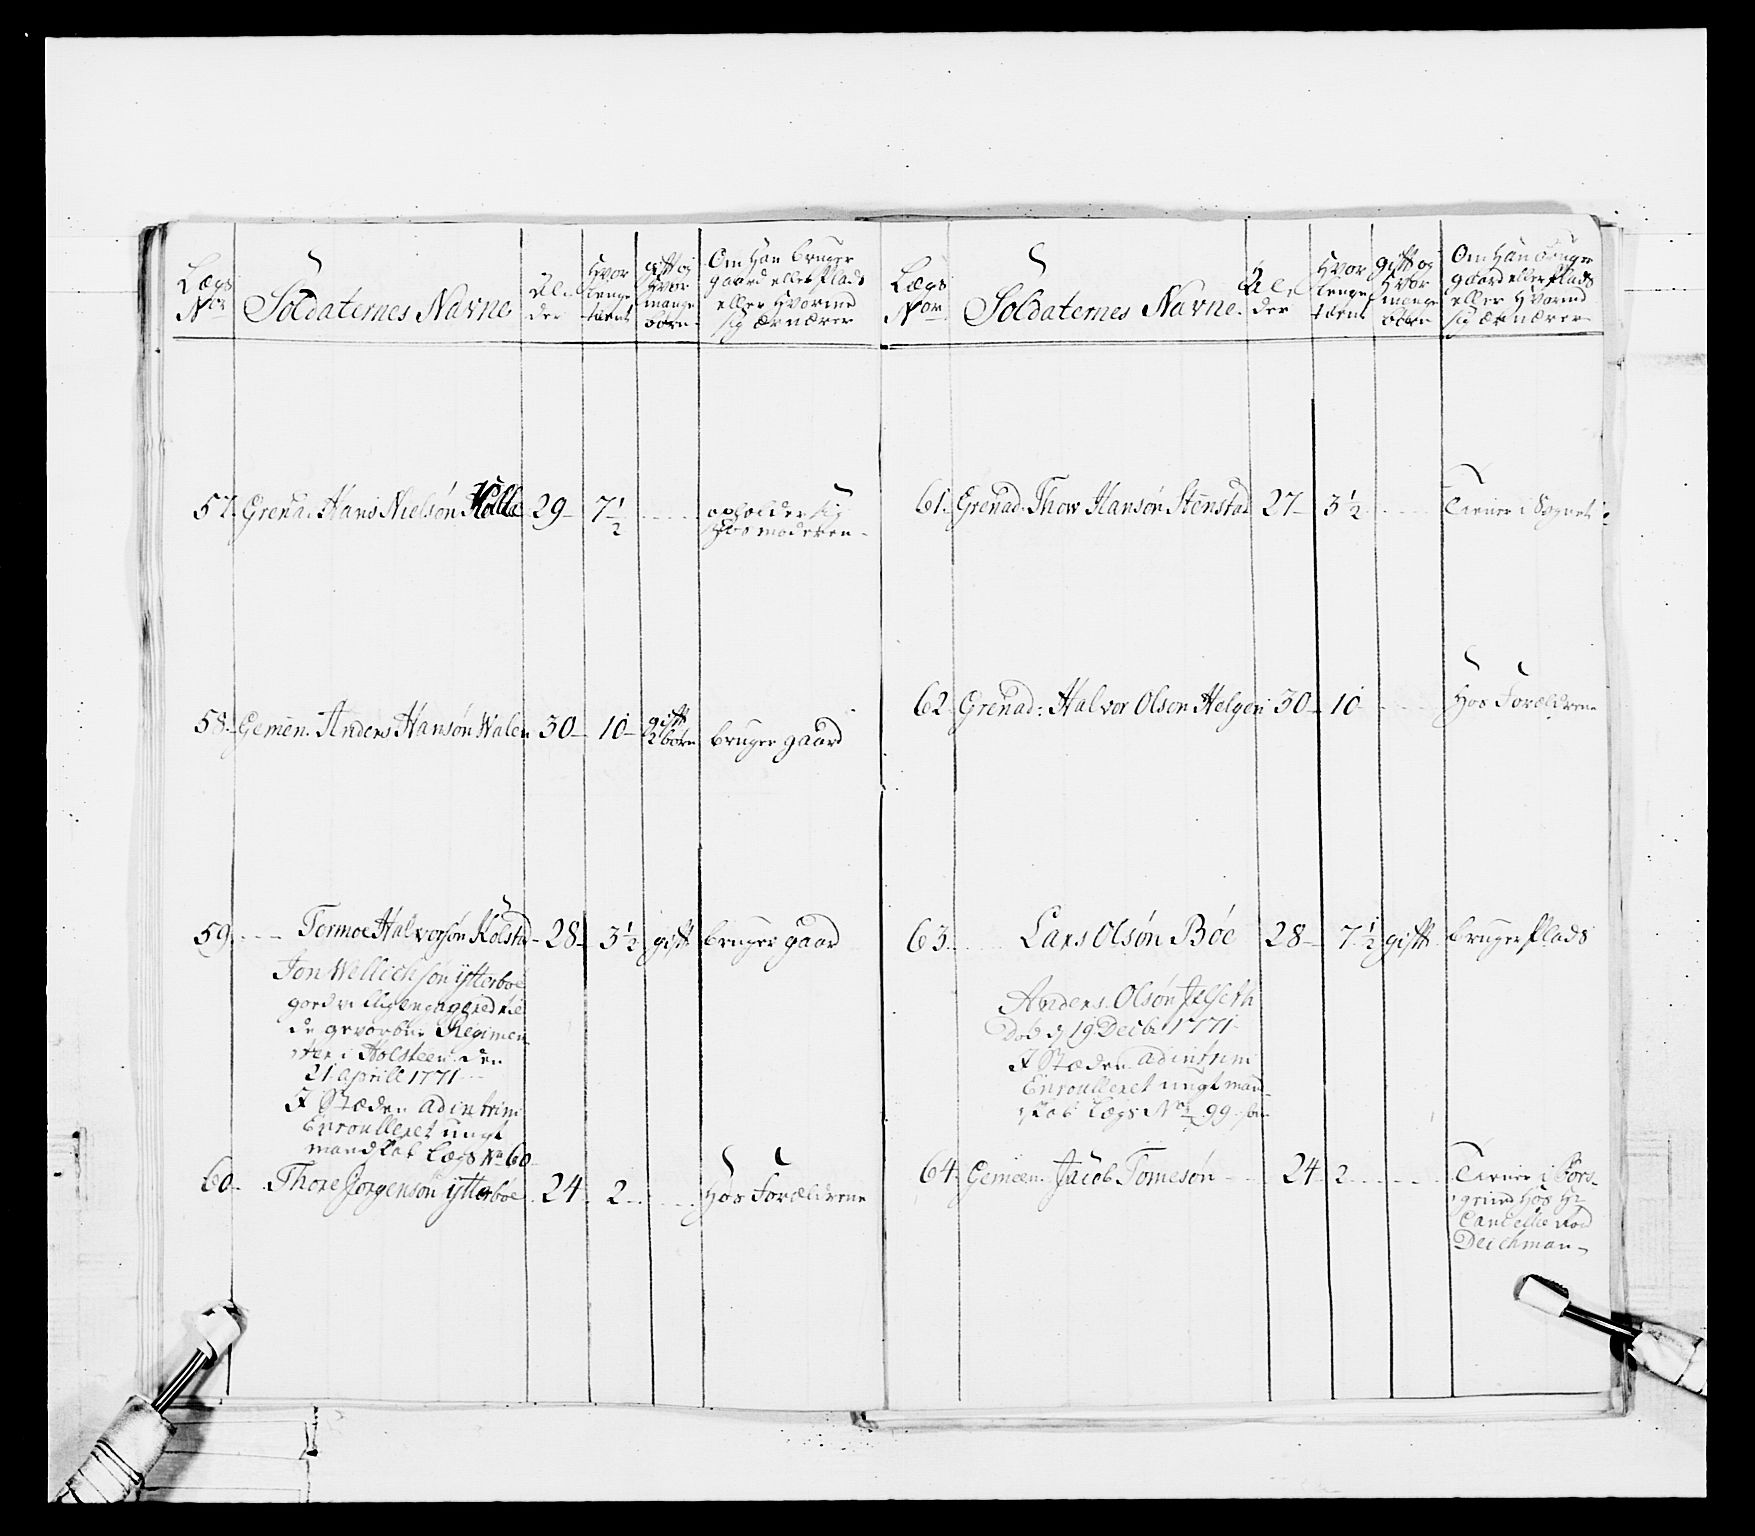 Lægs No
Soldaternes Navne
Al-
der
Hvor
lenge
tient
gift og
Hvor
mange
børn
Om Han bruger
gaard eller Plads
eller Hvormed
sig Ærnærer
57. Grena. Hans Nielsøn 29 7½ opholder sig
hos moderen
58. Gemen. Anders Hansøn Walen 30 10 gift
2 børn bruger gaard
59. Tormoe Halvorsøn Kolsta 28 3½ gift bruger gaard
Jon Wellichsøn ÿtterboe
engagered til
de gevorbne Regimen
ter i Holsteen den
21 aprill 1771
I Stæden ad intrim
Enroulleret ungt
mandskab Lægs No 60
60. Thore Jørgensøn ÿtterboe 24 2 Hos Forældrene
Lægs No
Soldaternes Navne
Al
der
Hvor
lenge
tient
gift og
Hvor
mange
børn
Om Han bruger
gaard eller Plads
eller Hvormed
sig Ærnærer
61. Grenad. Thow Hansøn Stenstad 27 3½ Tiener i
62. Grenad: Halvor Olson Helgen 30 10 Hos Forældrene
63. Lars Olsøn Bøe 28 7½ gift bruger Plads
Anders Olsøn Jelseth
Død d 19 Decbr 1771
I Stæden ad intrim
Enroulleret ungt man
skab Lægs No 99
64. Gemeen. Jacob Tomesøn 24 2 Tiener i Pors-
grund Hos Hr
Cancellie Raad
Deichman